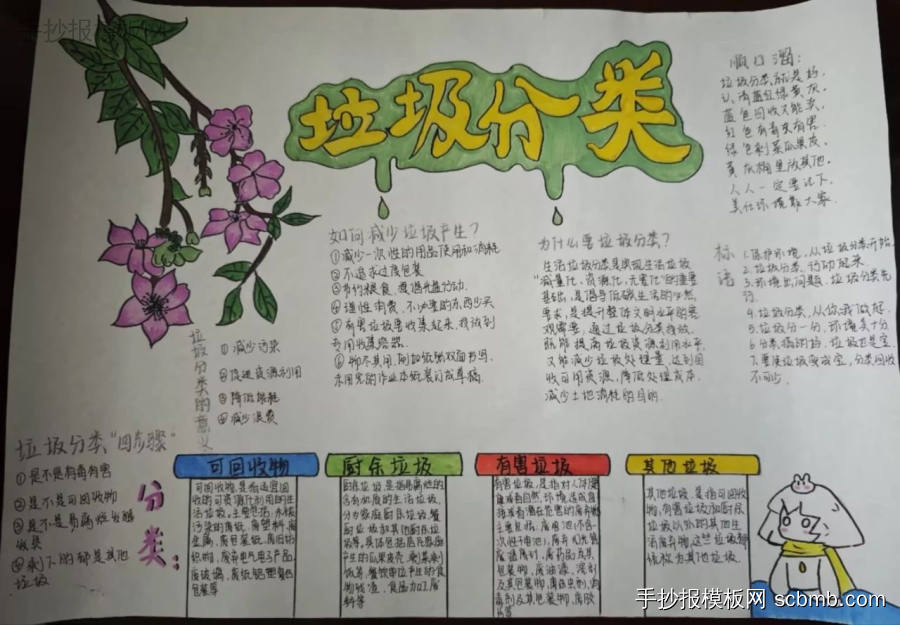 手抄报模板网
垃圾分类
顺口溜:
垃圾分类就是好,
认清蓝红绿黄灰。
蓝色回收又能卖,
红色有毒更有害。
绿色剩菜瓜果皮,
黄灰桶里放其他。
人人一定要记下,
美化环境靠大家.
如何减少垃圾产生?
①减少一次性的用品使用和消耗
②不追求过度包装
③节约粮食,遵循光盘行动.
④理性消费、不必要的东西少买
⑤有害垃圾要收集起来,投放到
专用收集容器.
⑥物尽其用,例如纸张双面书写,
未用完的作业本纸装订成草稿.
为什么要垃圾分类?
生活垃圾分类是实现生活垃圾
“减量化,资源化,无害化”的重要
基础,是倡导低碳生活的必然
要求,是提升整体文明水平的客
观需要,通过垃圾分类投放,
既能提高垃圾资源利用水平,
又能减少垃圾处理量,达到回
收可用资源,降低处理成本,
减少土地消耗的目的.
标语
1.保护环境,从垃圾分类开始
2.垃圾分类,行动起来
3.环境出问题,垃圾分类先
行.
4.垃圾分类,从你我做起.
5.垃圾分一分,环境美十分
6.分类搞得好,垃圾也是宝
7.要使垃圾变成宝,分类回收
不可少.
垃圾分类的意义
①减少污染
②促进资源利用
③降低损耗
④减少浪费
垃圾分类“四步骤”
①是不是有毒有害
②是不是可回收物
③是不是易腐烂
④剩下的都是其他
垃圾
分类:
可回收物
可回收物,是指适宜回
生活垃圾,主要包括:未被
污染的废纸,废塑料,废
金属,废包装纸,废旧纺
织物,废弃电气电子产品,
废玻璃,废纸铝塑复合
包装等
厨余垃圾
厨余垃圾,是指易腐烂的
含有机质的生活垃圾,
分为家庭厨余垃圾,餐
厨垃圾和其他厨余垃
圾等,具体包括居民家庭
产生的瓜果皮壳,剩菜剩
饭等,餐饮单位产生的食
物残渣,食品加工废
料等
有害垃圾
有害垃圾,是指对人体健
康或者自然环境造成直
接或者潜在危害的废弃物
主要包括:废电池(不含一
次性干电池),废弃日光管
废温度计,废药品及其
包装物,废油漆,溶剂
及其包装物,废杀虫剂,消
毒剂及其包装物,废胶
片等
其他垃圾
其他垃圾,是指可回收
物,有害垃圾和厨余
垃圾以外的其他生
活废弃物,这些垃圾都
统称为其他垃圾.
手抄报模板网 scbmb.com